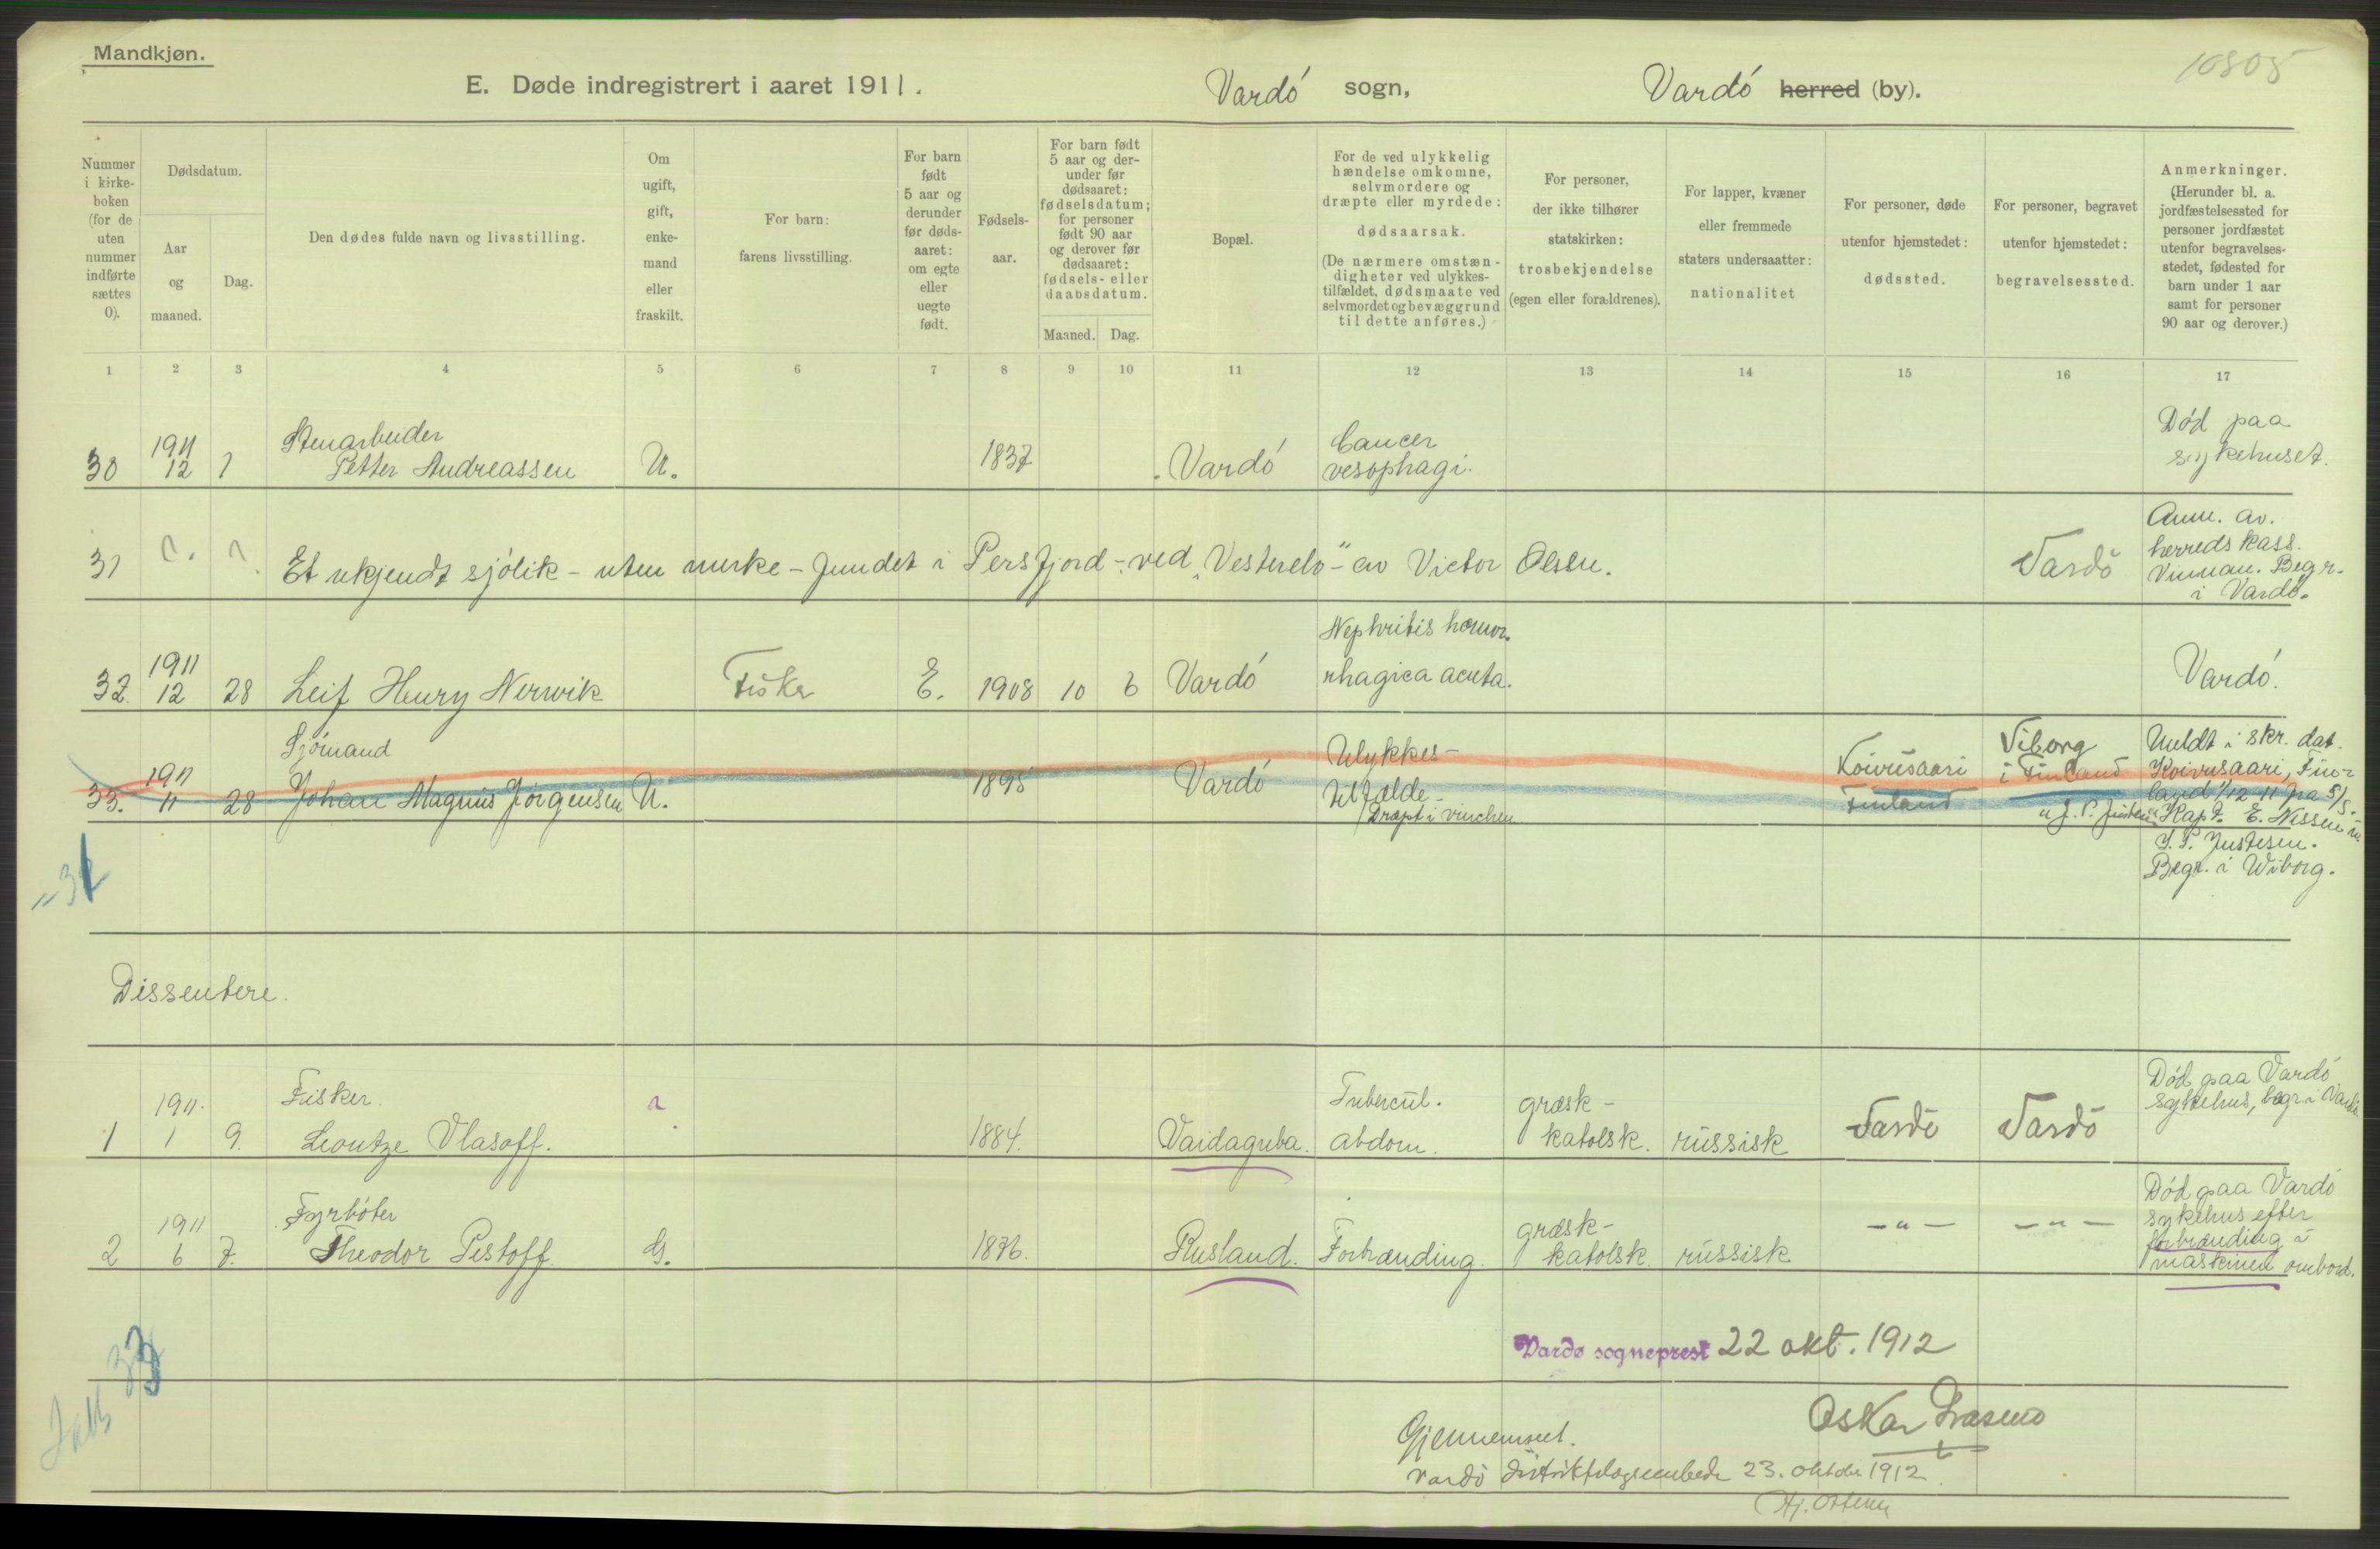 Mandkjøn.
10805
E. Døde indregistrert i aaret 1911. Vardö sogn, Vardö herred (by).
Nummer i kirke-boken (for de uten nummer indførte sættes 0).
Dødsdatum.
Aar og maaned.
Dag.
Den dødes fulde navn og livsstilling.
Om ugift, gift, enke-mand eller fraskilt.
For barn: farens livsstilling.
For barn født 5 aar og derunder før døds-aaret: om egte eller uegte født.
Fødsels-aar.
For barn født 5 aar og der-under før dødsaaret: fødselsdatum; for personer født 90 aar og derover før dødsaaret: fødsels- eller daabsdatum.
Maaned. Dag.
Bopæl.
For de ved ulykkelig hændelse omkomne, selvmordere og dræpte eller myrdede: dødsaarsak. (De nærmere omstæn-digheter ved ulykkes-tilfældet, dødsmaate ved selvmordet og bevæggrund til dette anføres.)
For personer, der ikke tilhører statskirken: trosbekjendelse (egen eller forældrenes).
For lapper, kvæner eller fremmede staters undersaatter: nationalitet
For personer, døde utenfor hjemstedet: dødssted.
For personer, begravet utenfor hjemstedet: begravelsessted.
Anmerkninger. (Herunder bl. a. jordfæstelsessted for personer jordfæstet utenfor begravelses-stedet, fødested for barn under 1 aar samt for personer 90 aar og derover.)
1 2 3 4 5 6 7 8 9 10 11 12 13 14 15 16 17
30 1911 12 1 Stenarbeider Petter Andreassen U. 1837 Vardö Cancer oesophagi. Död paa sykehuset.
31 ?. ?. Et ukjendt sjölik - uten merke - fundet i Persfjord - ved „Vesterelv" - av Victor Olsen. Vardö Anm. av. herredskass. Begr. i Vardö.
32. 1911 12 28 Leif Henry Nerwik Fisker E. 1908 10 6 Vardö Nephritis hæmor-rhagica acuta. Vardö.
33. 1911 11 28 Sjömand Johan Magnus Jörgensen U. 1895 Vardö Ulykkes-tilfælde - Dræpt i vinchen Koivusaari Finland Viborg i Finland Meldt i skr. dat. Koivusaari, Finland 1/12 11 fra S/S. „J. P. Justesen" Kapt. E. Nissen
J. P. Justesen.
Begr. i Wiborg.
= 31
Dissentere.
1 1911. 1 9. Fisker. Leontze Vlasoff. ? 1884. Vaidaguba. Tubercul. abdom. græsk-katolsk. russisk Vardö Vardö Död paa Vardö sykehus, begr. i Vardö
2 1911 6 7. Fyrböter Theodor Pestoff G. 1876. Rusland. Forbrænding. græsk-katolsk. russisk -"- -"- Död paa Vardö sykehus efter forbrænding i maskinen ombord.
33
Vardø sogneprest 22 okt. 1912
Oskar
Gjennemseet.
Vardö distriktslægeembede 23. oktober 1912
Hj.